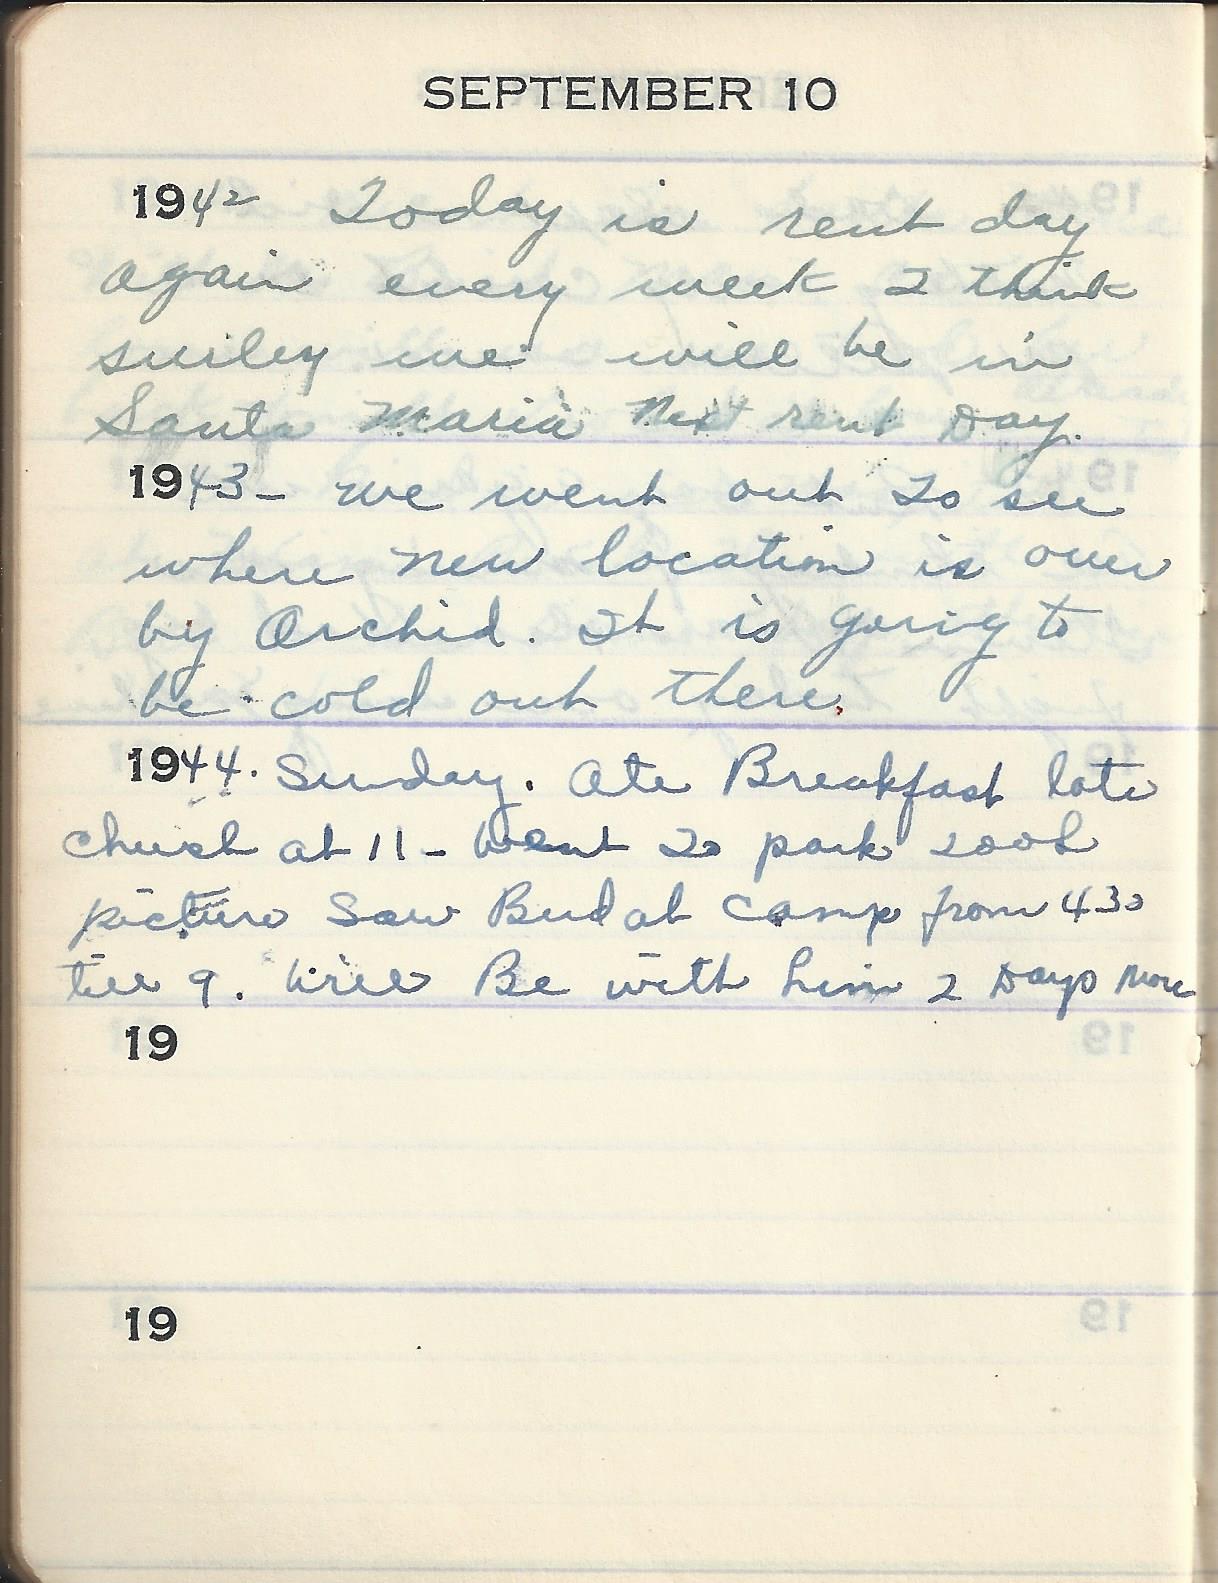 SEPTEMBER 10
1942 Today is rent day
again every week I think
surley we will be in
Santa Maria Next rent Day.
1943- we went out to see
where new location is over
by Orchid. It is going to
be cold out there.
1944. Sunday. Ate Breakfast late
church at 11- Went to park took
picture Saw Bud at Camp from 430
till 9. Will Be with him 2 Days More
19
19